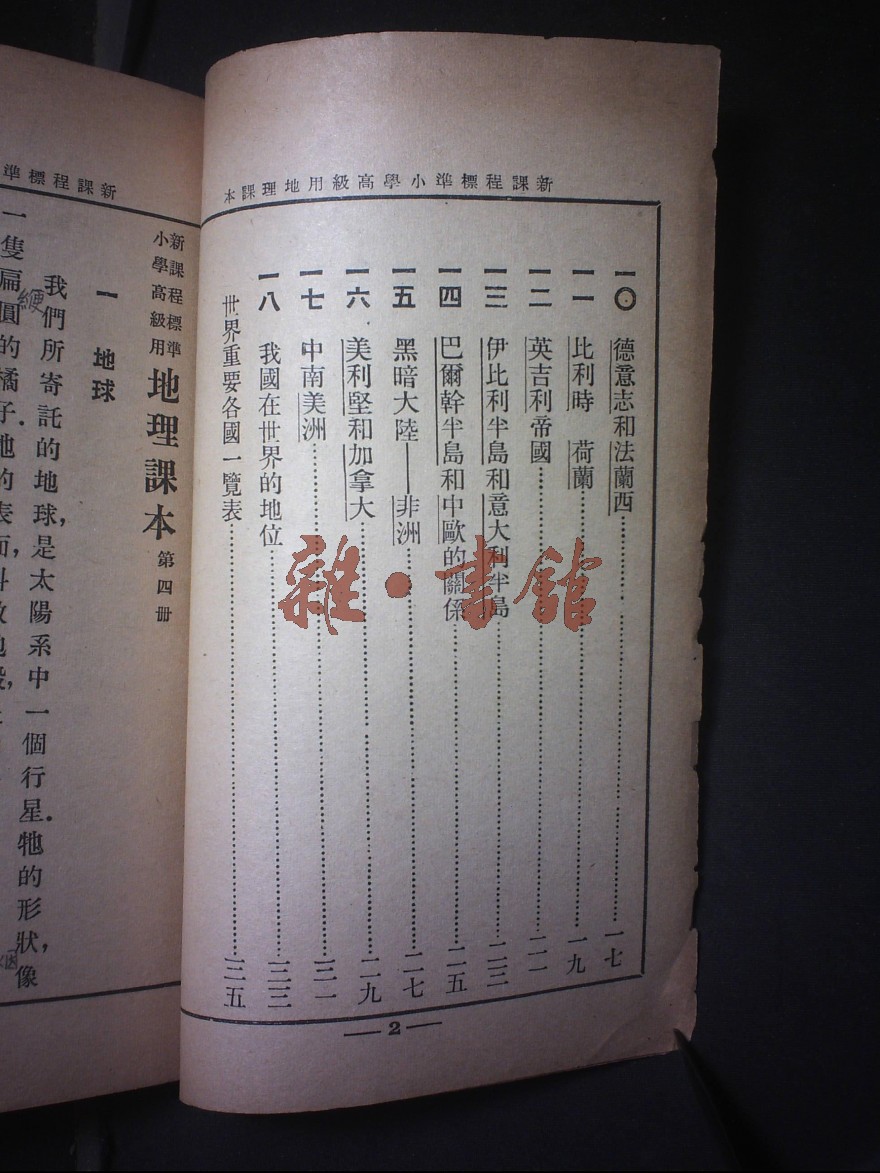 新課程標準小學高級用地理課本
一〇 德意志和法蘭西……一七
一一 比利時 荷蘭……一九
一二 英吉利帝國……二一
一三 伊比利半島和意大利半島……二三
一四 巴爾幹半島和中歐的關係……二五
一五 黑暗大陸——非洲……二七
一六 美利堅和加拿大……二九
一七 中南美洲……三一
一八 我國在世界的地位……三三
世界重要各國一覽表……三五
—2—
雜·書館
新課程標準
新課程標準
小學高級用
地理課本 第四册
一 地球
我們所寄託的地球,是太陽系中一個行星.牠的形狀,像
一隻扁圓的橘子.